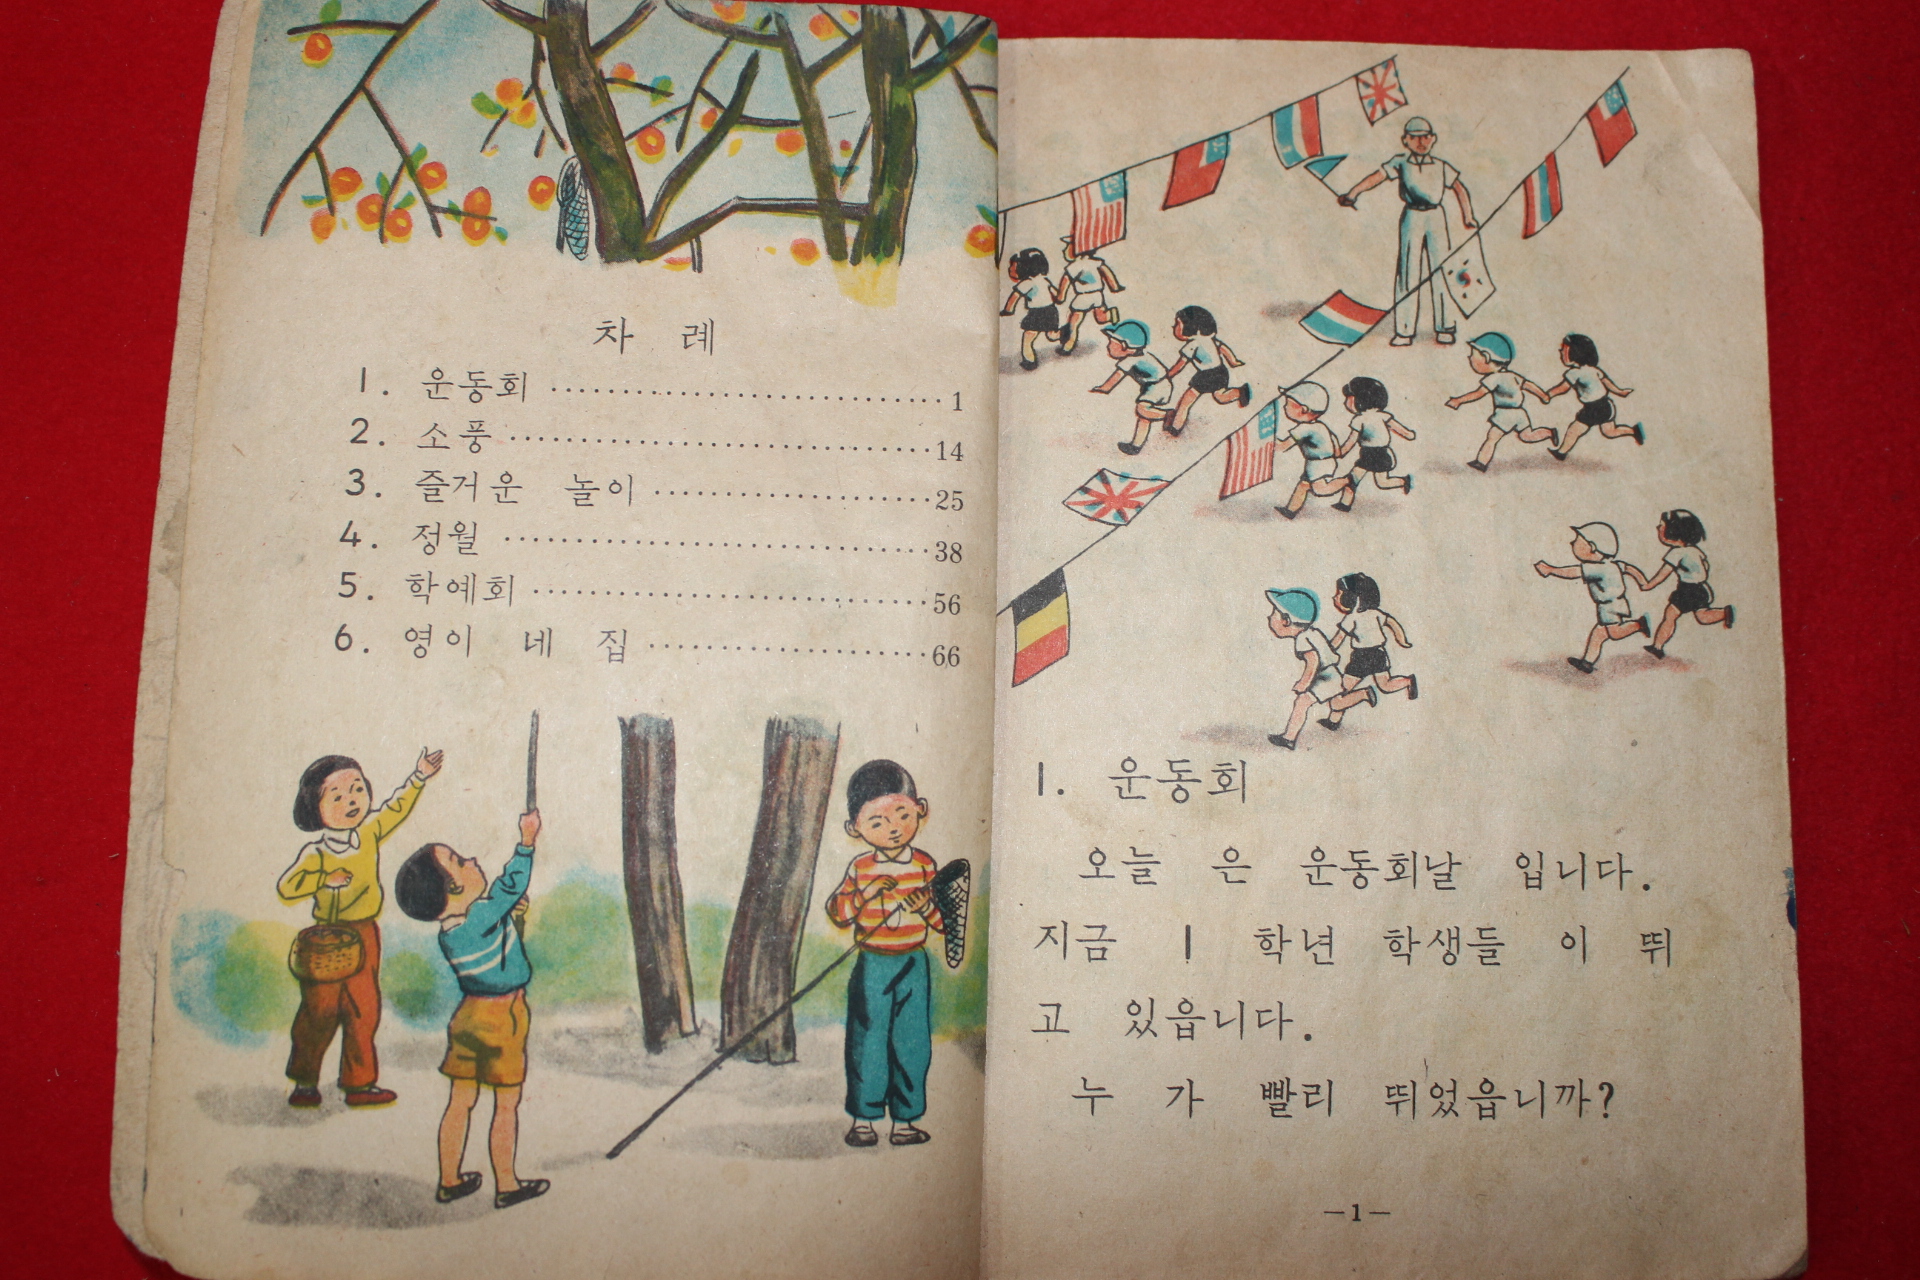 차 례
1. 운동회 ································ 1
2. 소풍 ···································· 14
3. 즐거운 놀이 ························ 25
4. 정월 ···································· 38
5. 학예회 ································ 56
6. 영이 네 집 ························ 66
1. 운동회
오늘 은 운동회날 입니다.
지금 1 학년 학생들 이 뛰
고 있읍니다.
누 가 빨리 뛰었읍니까?
—1—